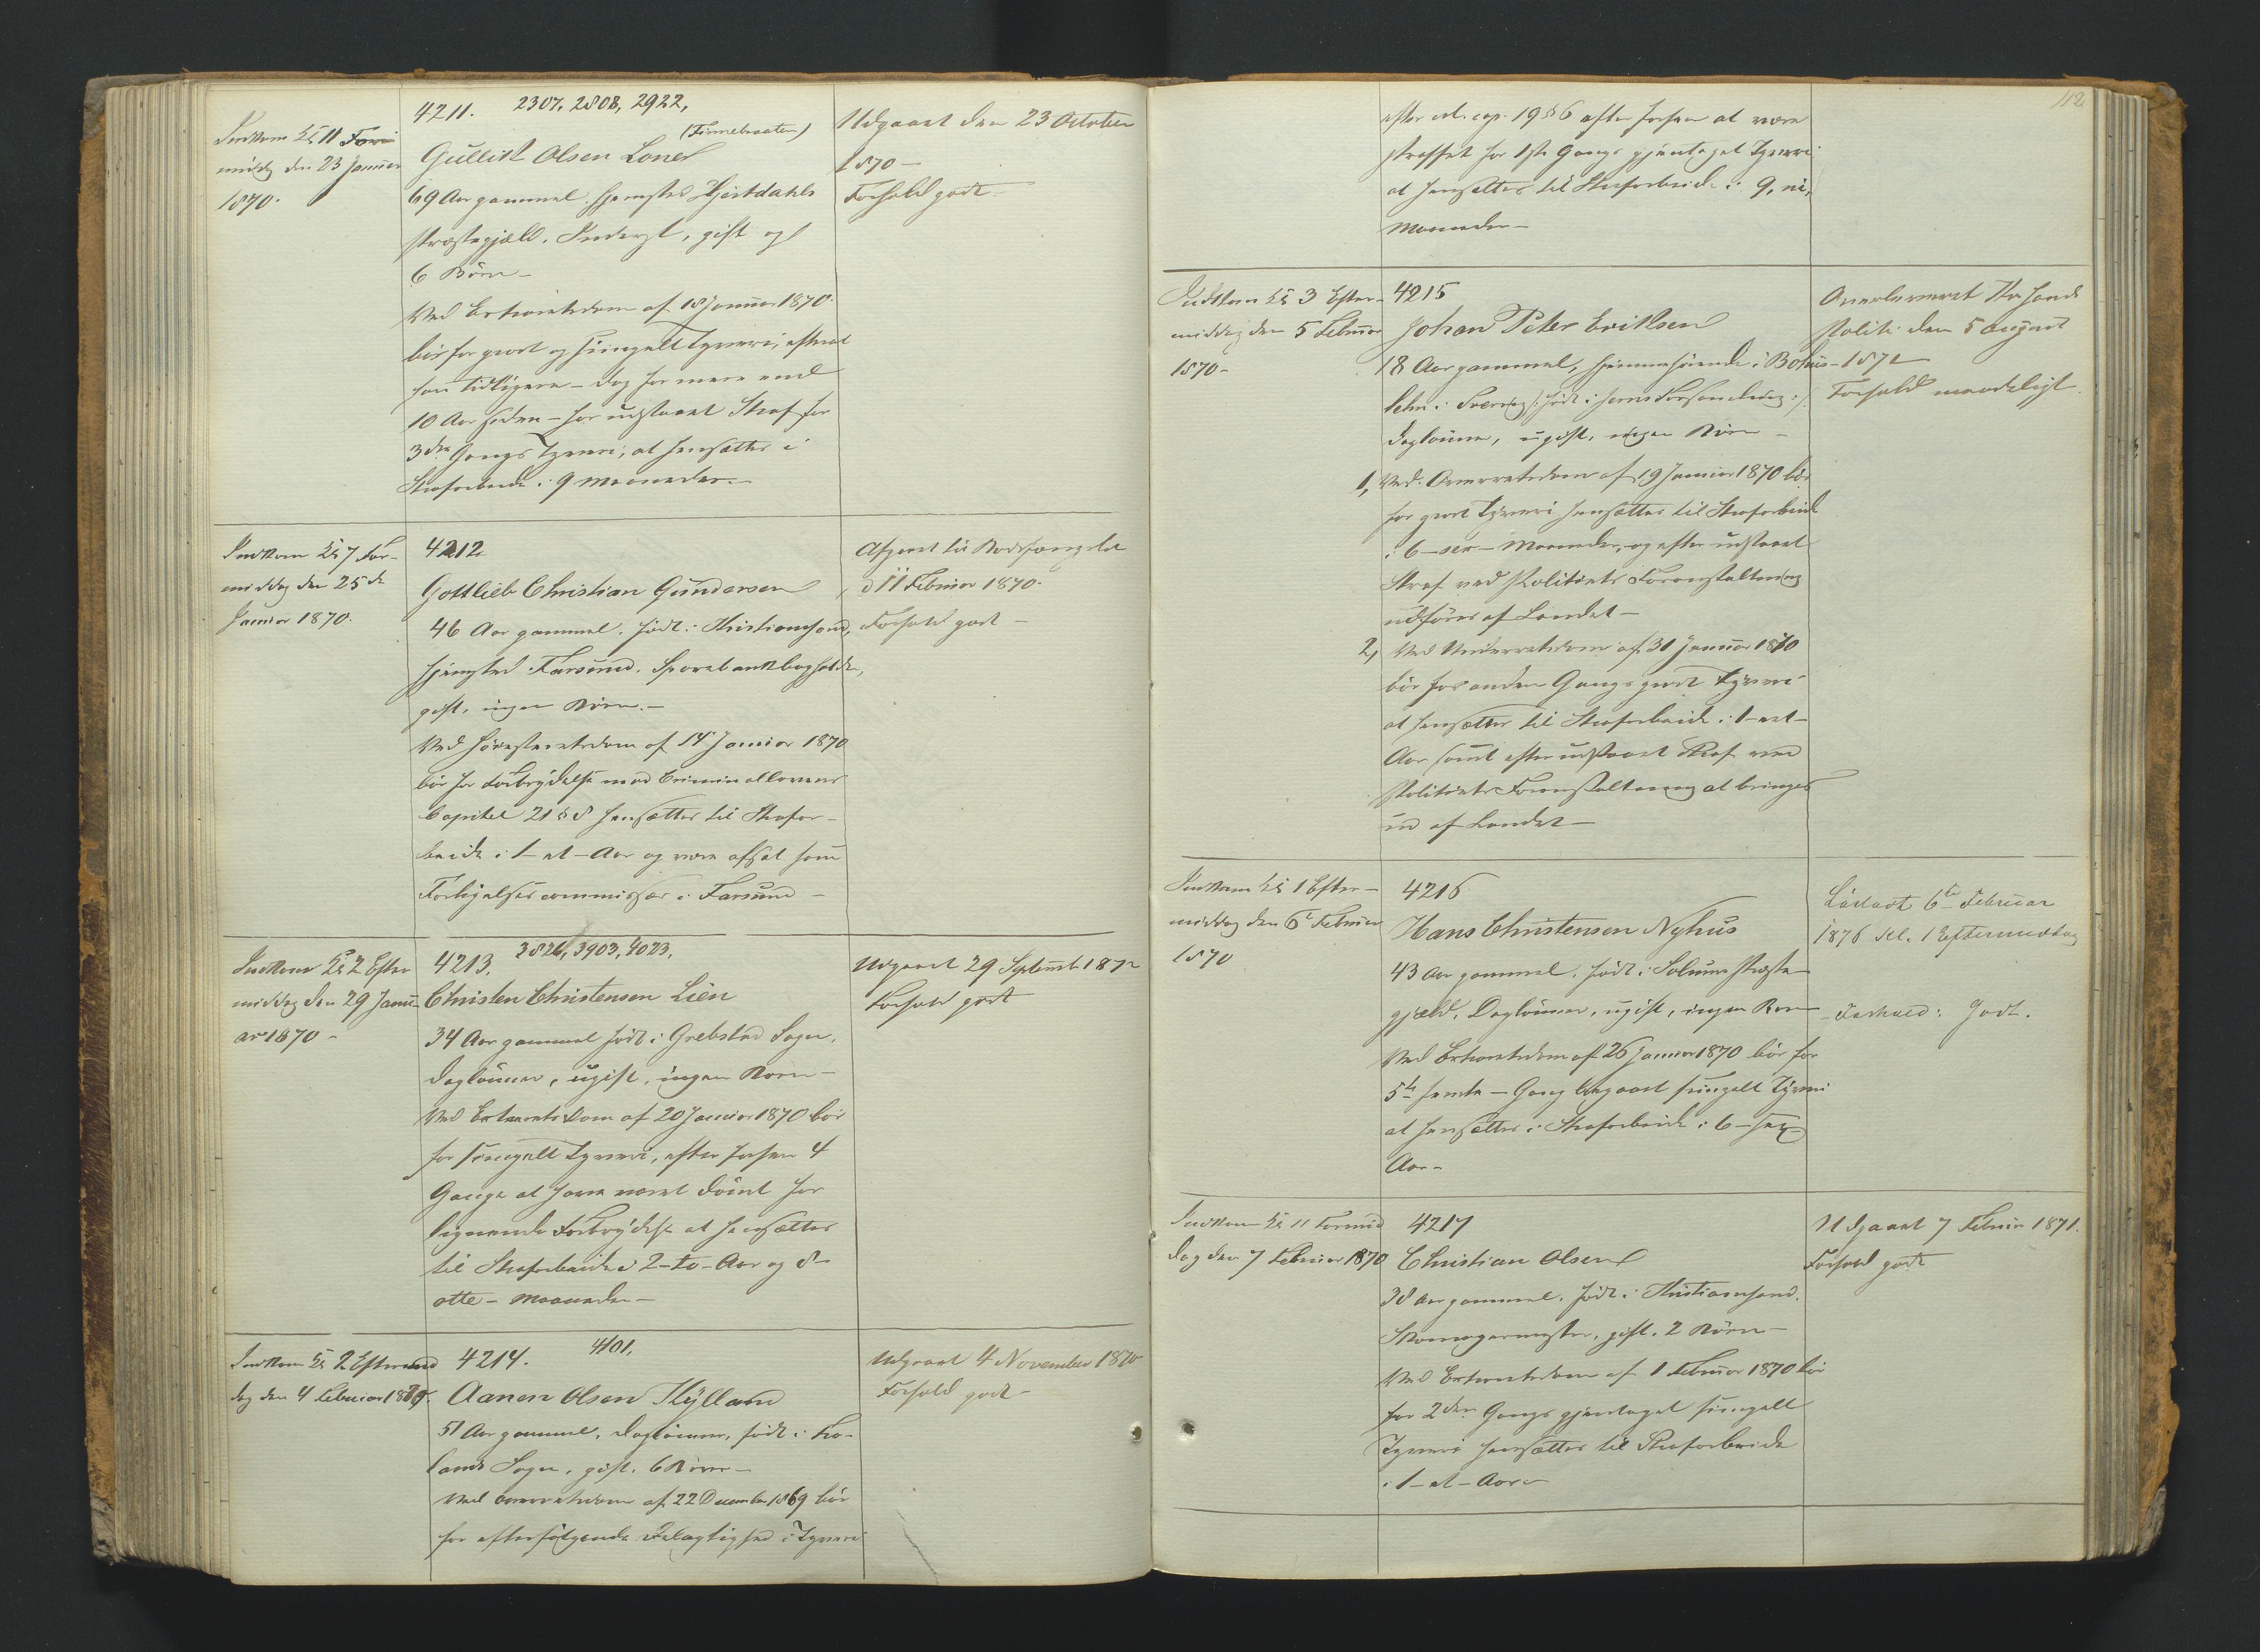 Indkom Kl 11 Formiddag den 23 Januar
1870.
4211. 2307, 2808, 2922,
(Finnebraaten)
Gullik Olsen Loner
69 Aar gammel. Hjemsted Hjertdahls
Præstegjæld. Inderst, gift og
6 Børn –
Ved Extraretsdom af 18 Januar 1870
bør for grovt og simpelt Tyveri, efterat
han tidligere – dog for mere end
10 Aar siden – har udstaaet Straf for
3die Gangs Tyveri, at hensættes i
Strafarbeide i 9 Maaneder. –
Udgaaet den 23 October
1870 –
Forhold godt.
Indkom Kl 7 For-
middag den 25de
Januar 1870.
4212
Gottlieb Christian Gundersen
46 Aar gammel. født i Kristiansand,
hjemsted Farsund. Sparebankbogholder,
gift, ingen Børn. –
Ved Høiesteretsdom af 14 Januar 1870
bør for Forbrydelse mod Criminallovens
Capitel 21 § 8 hensættes til Strafar-
beide i 1 – et – Aar og være afsat som
Forligelsescommissær i Farsund –
Afgaaet til Bodsfængslet
d 11 Februar 1870.
Forhold godt –
Indkom Kl 2 Efter
middag den 29 Janu-
ar 1870 –
4213. 3826, 3903, 4023,
Christen Christensen Lien
34 Aar gammel født i Grebstad Sogn.
Dagleier, ugift, ingen Børn –
Ved Extraretsdom af 20 Januar 1870 bør
for simpelt Tyveri, efter forhen 4
Gange at have været dømt for
lignende Forbrydelse at hensættes
til Strafarbeide i 2 – to – Aar og 8 –
otte – Maaneder –
Udgaaet 29 Septemb 1872
Forhold godt
Indkom Kl 2 Eftermid
dag den 4 Februar 1870.
4214. 4101,
Aanen Olsen Kylland
51 Aar gammel, Dagleier, født i
lands Sogn, gift. 6 Børn –
Ved Overretsdom af 22 December 1869 bør
for efterfølgende Delagtighed i Tyveri
Udgaaet 4 November 1870
Forhold godt –
112
efter cfr. cap. 19 § 6 efter forhen at være
straffet for 1ste Gangs gjentaget Tyveri
at hensættes til Strafarbeide i 9, ni,
Maaneder –
Indkom Kl 3 Efter-
middag den 5 Februar
1870 –
4215
Johan Peter Eriksen
18 Aar gammel, hjemmehørende i Bohus-
lehn i Sverrig
Dagleier, ugift, ingen Børn –
1, Ved Overretsdom af 19 Januar 1870 bør
for grovt Tyveri hensættes til Strafarbeide
i 6 – sex – Maaneder, og efter udstaaet
Straf ved Politiets Foranstaltning
udføres af Landet –
2, Ved Underretsdom af 31 Januar 1870
bør for anden Gangs grovt Tyveri
at hensættes til Strafarbeide i 1 – eet –
Aar samt efter udstaaet Straf ved
Politiets Foranstaltning at bringes
ud af Landet –
Overleveret Kr.sands
Politi den 5 August
1871
Forhold maadeligt.
Indkom Kl 1 Efter-
middag den 6te Februar
1870
4216
Hans Christensen Nyhus
43 Aar gammel. født i Solums Præste-
gjæld. Dagleier, ugift, ingen Børn
Ved Extraretsdom af 26 Januar 1870 bør for
5te femte – Gang begaaet simpelt Tyveri
at hensættes i Strafarbeide i 6 – sex –
Aar –
Løsladt 6te Februar
1876 Kl. 1 Eftermiddag
Forhold: Godt.
Indkom Kl 11 Formid
dag den 7 Februar 1870
4217
Christian Olsen
38 Aar gammel. født i Kristiansand.
Skomagermester, gift. 2 Børn –
Ved Extraretsdom af 1 Februar 1870 bør
for 2den Gangs gjentaget simpelt
Tyveri hensættes til Strafarbeide
i 1 – et – Aar –
Udgaaet 7 Februar 1871.
Forhold godt